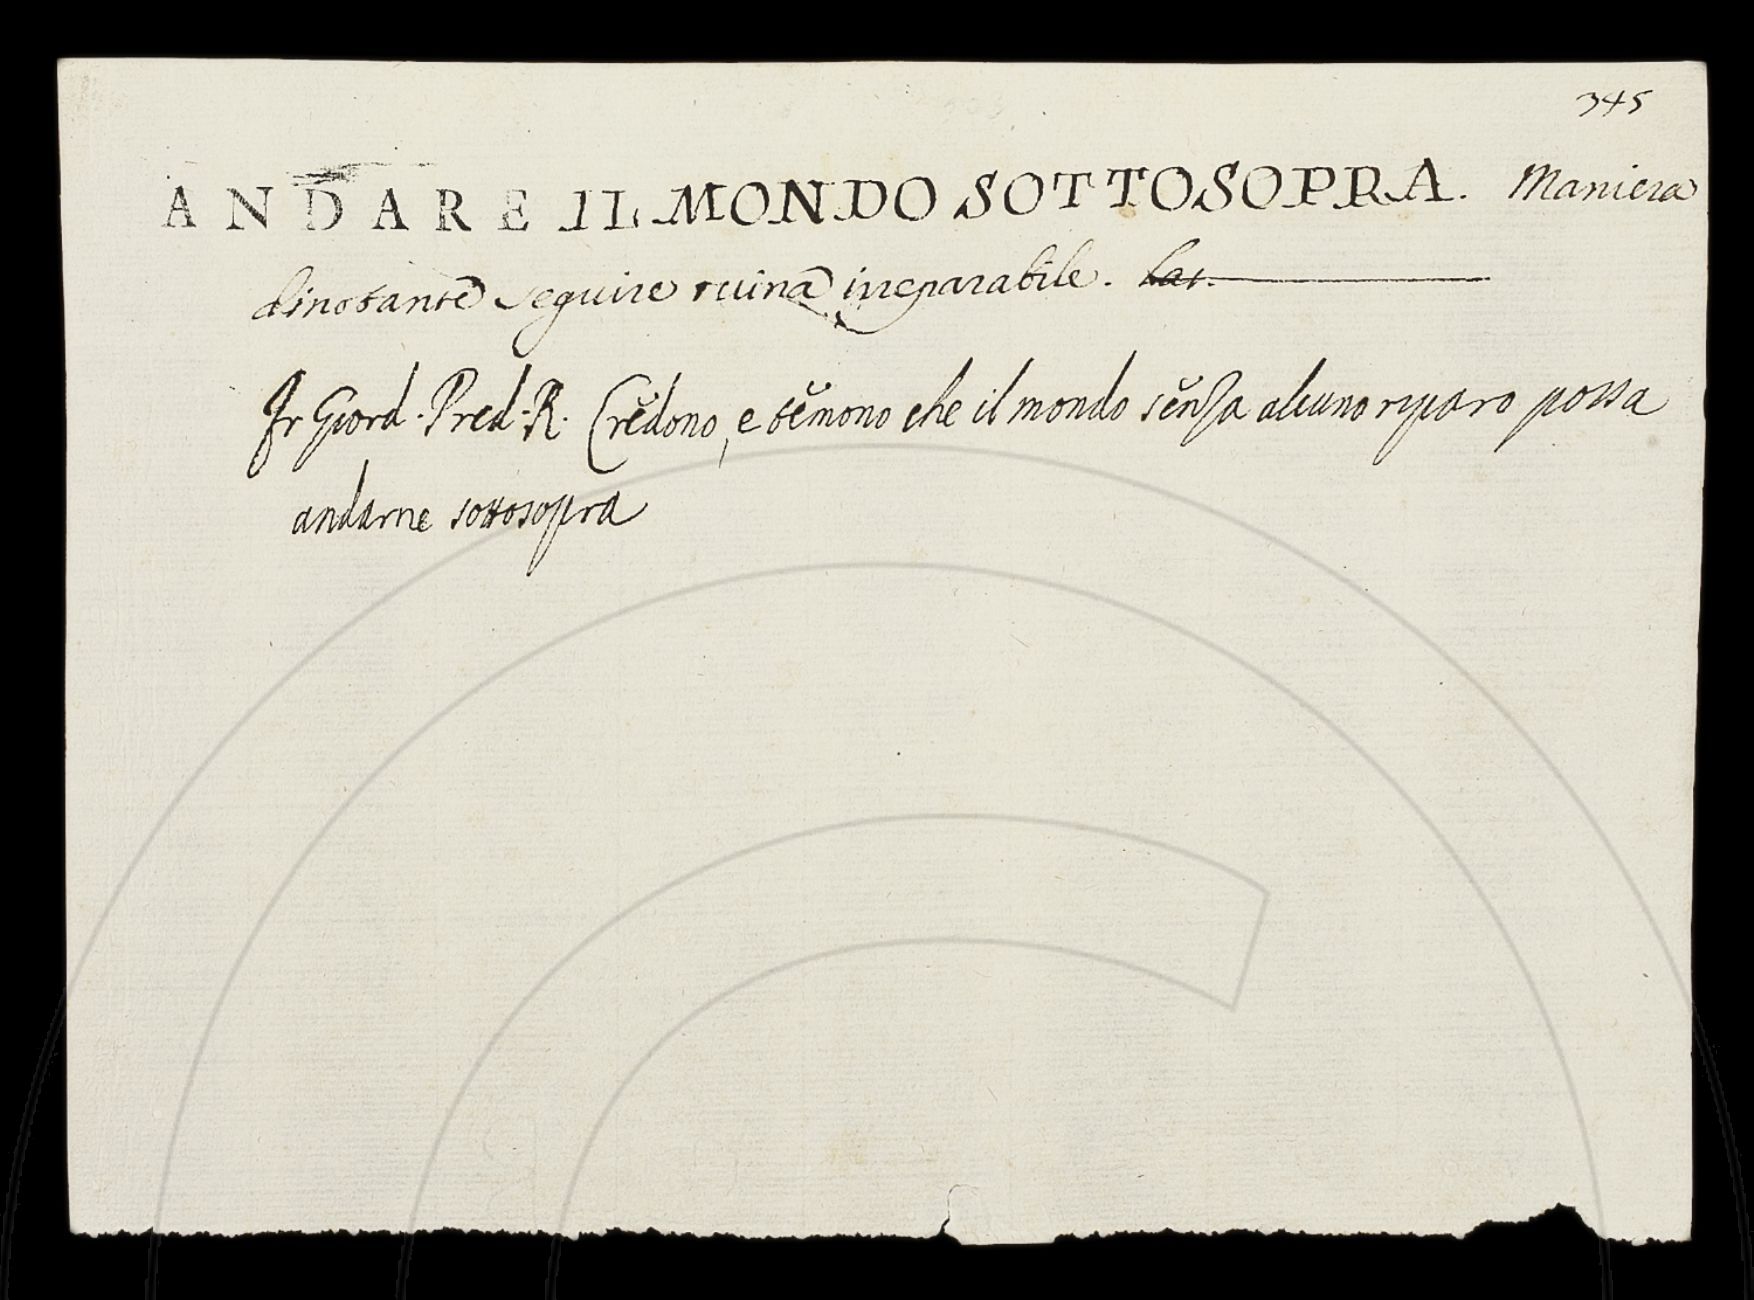 345
ANDARE IL MONDO SOTTOSOPRA. Maniera
dinotante seguire ruina irreparabile. Lat.
Fr Giord. Pred. R. Credono, e temono che il mondo senza alcuno riparo possa
andarne sottosopra